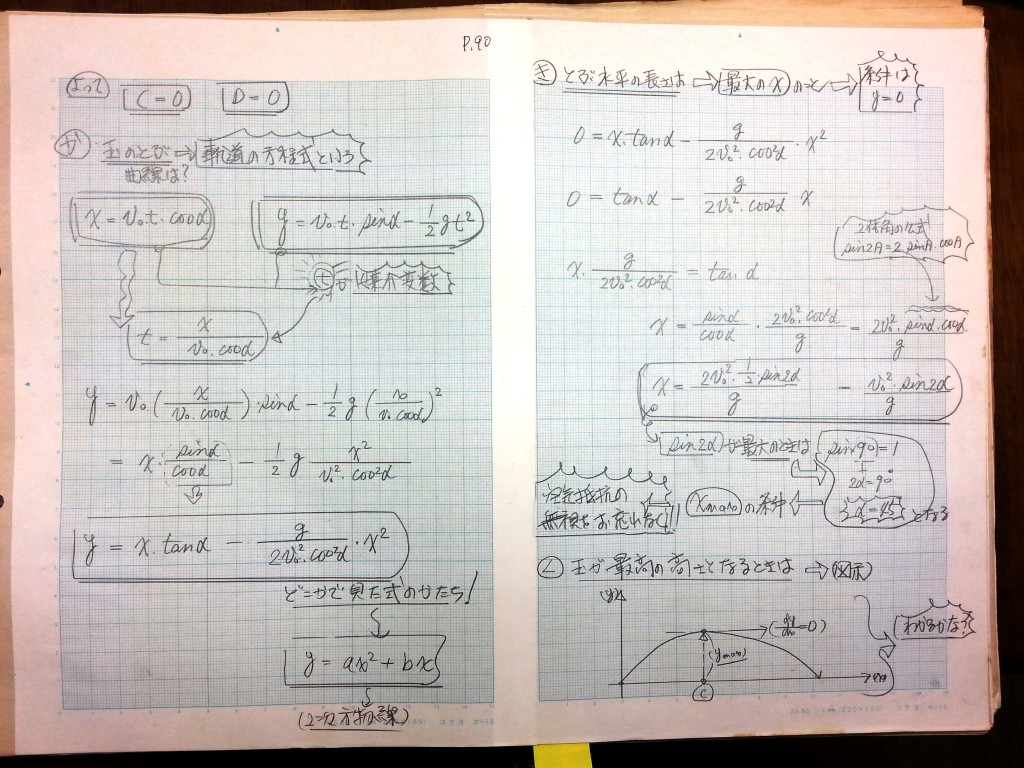 P.90
よって C=0 D=0
か 玉のとび⇨軌道の方程式という
曲線は?
x = v₀.t.cosα y = v₀.t.sinα - 1/2 gt²
t が媒介変数
t = x / v₀.cosα
y = v₀.(x / v₀.cosα).sinα - 1/2 g (x / v₀.cosα)²
= x. sinα/cosα - 1/2 g x² / v₀².cos²α
y = x.tanα - g / 2v₀².cos²α ・x²
どこかで見た式のかたち!
y = ax² + bx
(2=次方物線)
き とぶ水平の長さは⇨最大のxのこと⇨条件は
y=0
0 = x.tanα - g / 2v₀².cos²α ・x²
0 = tanα - g / 2v₀².cos²α x
2倍角の公式
sin2A = 2.sinA.cosA
x. g / 2v₀².cos²α = tanα
x = sinα/cosα ・ 2v₀².cos²α / g = 2v₀².sinα.cosα / g
x = 2v₀².1/2.sin2α / g = v₀².sin2α / g
sin2αが最大のときは sin90=1
2α=90°
α=45 となる
xmaxの条件
空気抵抗の
無視をお忘れなく!!
く 玉が最高の高さとなるときは⇨(図示)
(y)
(dy/dx=0)
(ymax)
C
(x)
わかるかな?